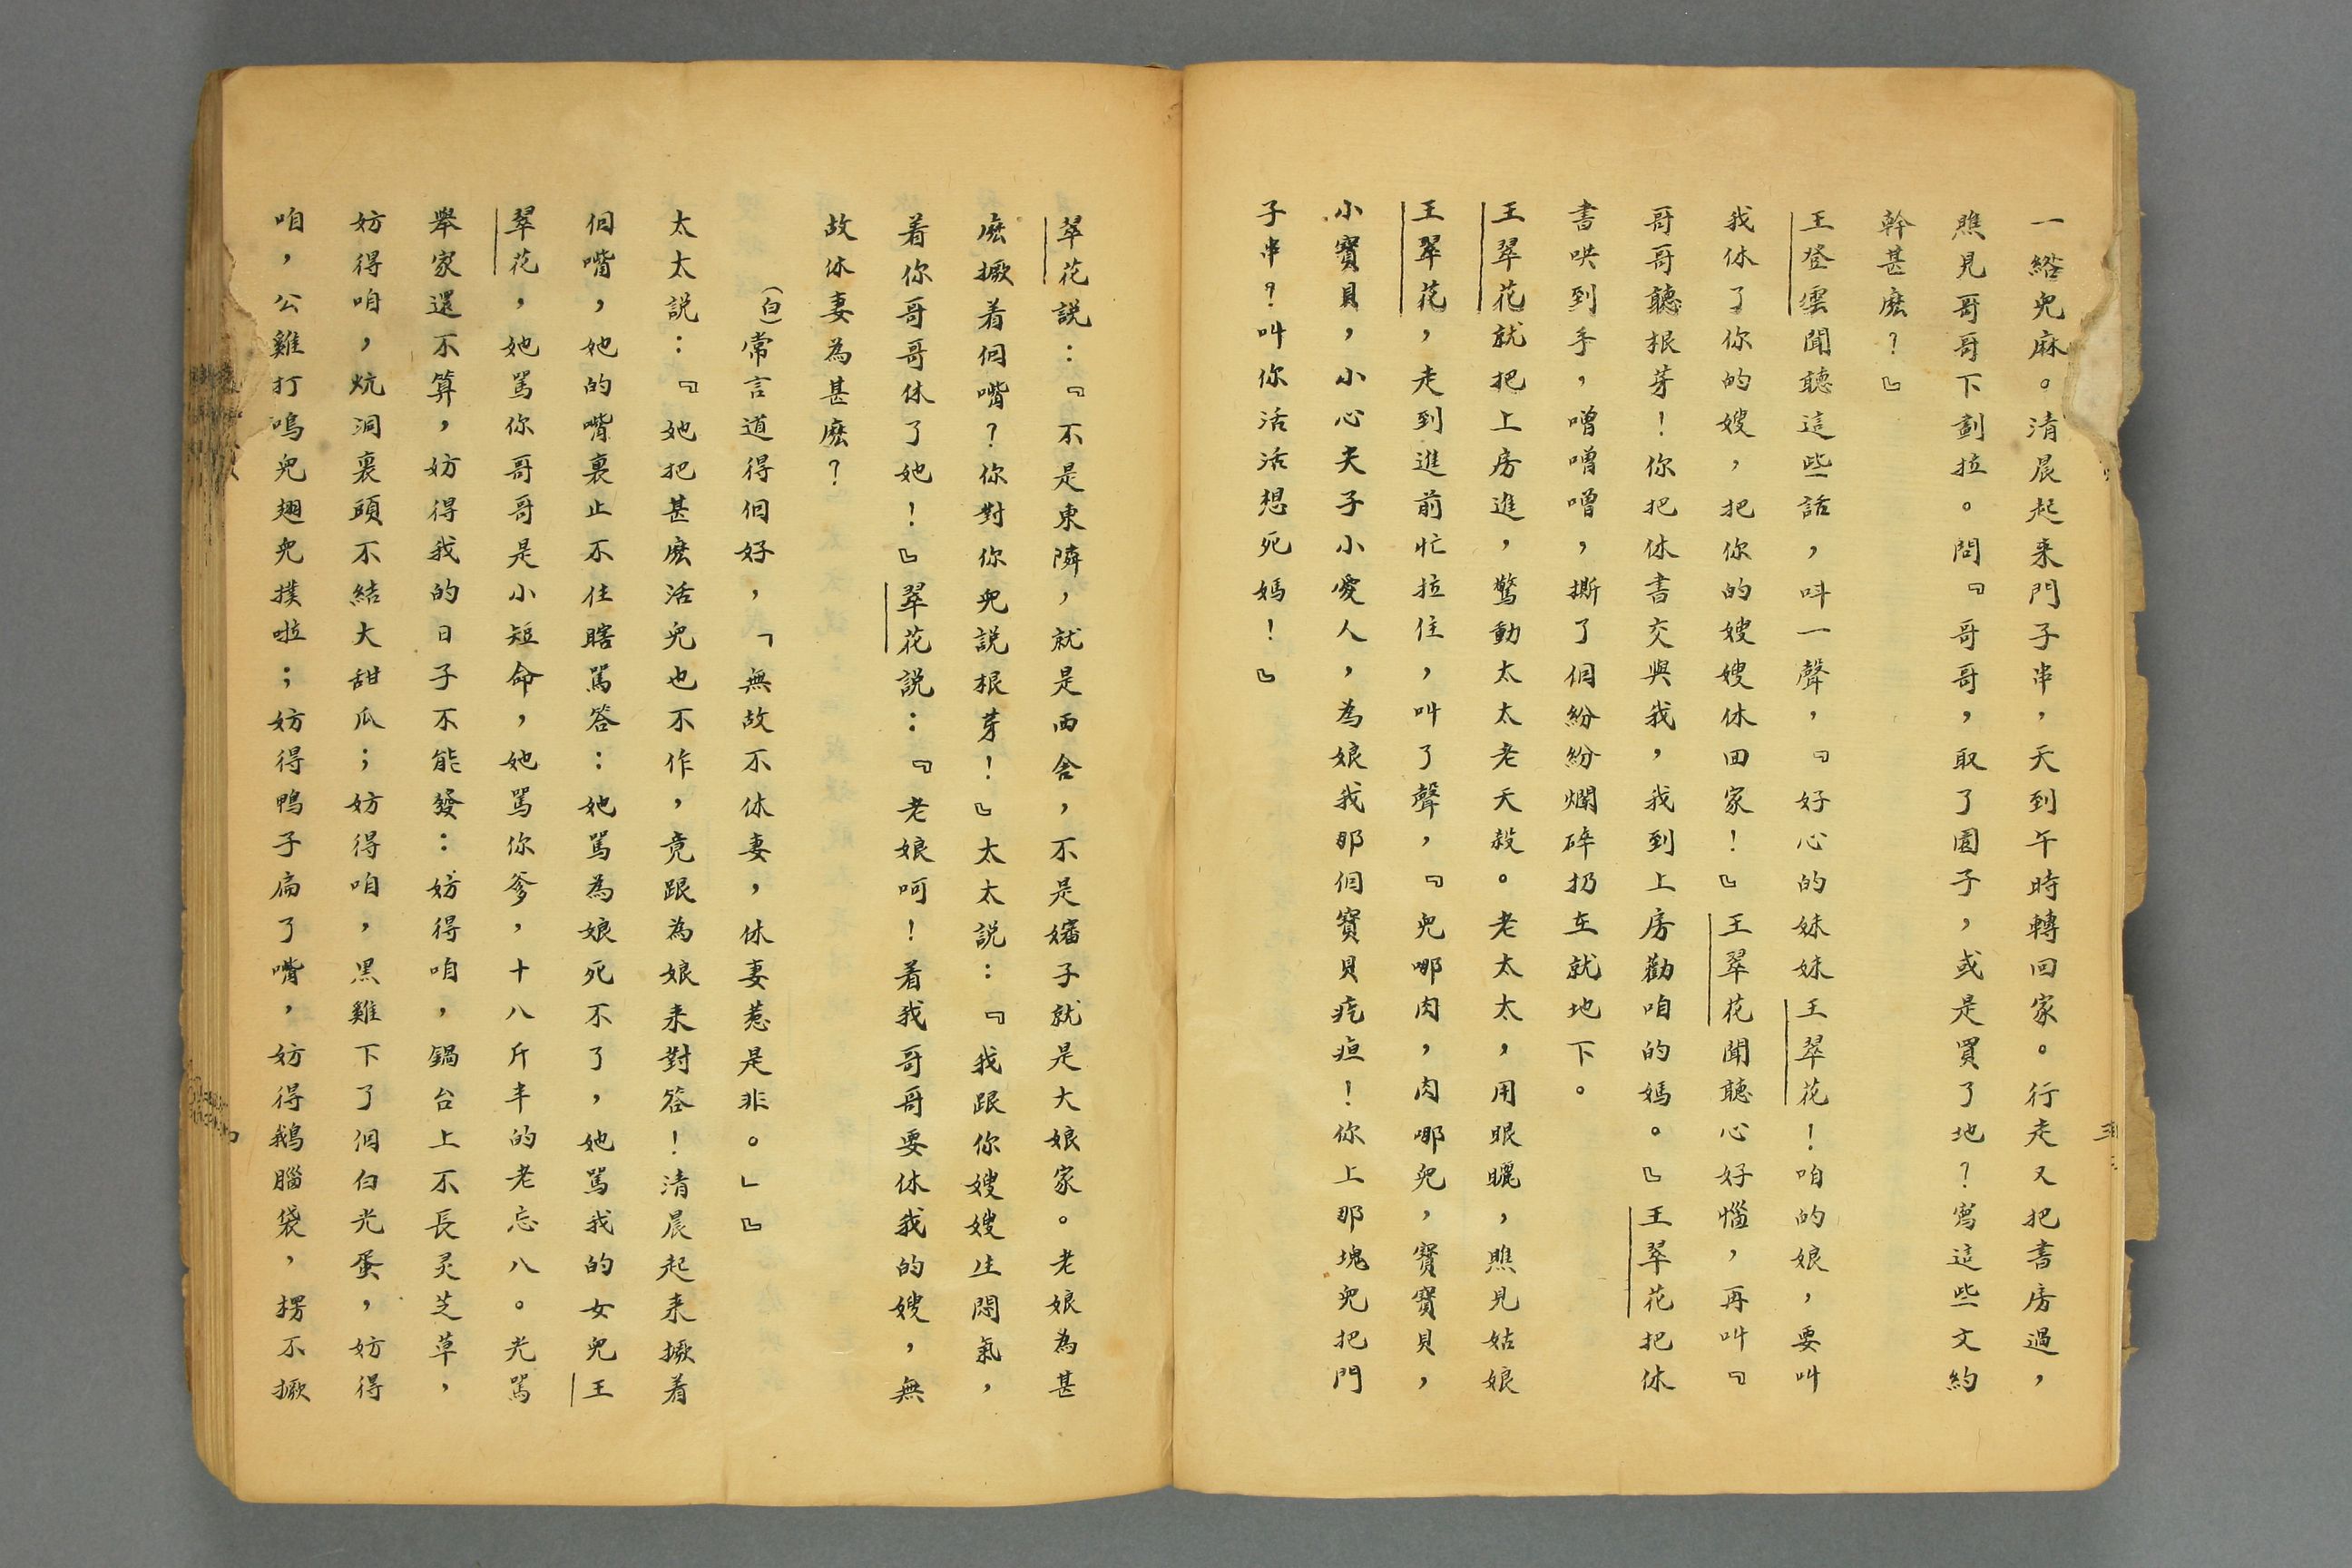 一綹兒麻。清晨起来門子串，天到午時轉回家。行走又把書房過，
瞧見哥哥下劃拉。問『哥哥，取了園子，或是買了地？寫這些文約
幹甚麽？』
王登雲聞聽這些話，叫一聲，『好心的妹妹王翠花！咱的娘，要叫
我休了你的嫂，把你的嫂嫂休回家！』王翠花聞聽心好惱，再叫『
哥哥聽根芽！你把休書交與我，我到上房勸咱的媽。』王翠花把休
書哄到手，噌噌噌，撕了個紛紛爛碎扔在就地下。
王翠花就把上房進，驚動太太老天殺。老太太，用眼𥌓，瞧見姑娘
王翠花，走到進前忙拉住，叫了聲，『兒哪肉，肉哪兒，寶寶貝，
小寶貝，小心夫子小愛人，為娘我那個寶貝疙疸！你上那塊兒把門
子串？叫你活活想死媽！』
翠花説：『不是東隣，就是西舍，不是嬸子就是大娘家。老娘為甚
麽撅着個嘴？你對你兒説根芽！』太太説：『我跟你嫂嫂生悶氣，
着你哥哥休了她！』翠花説：『老娘呵！着我哥哥要休我的嫂，無
故休妻為甚麽？
(白)常言道得個好，「無故不休妻，休妻惹是非。」』
太太説：『她把甚麽活兒也不作，竟跟為娘来對答！清晨起来撅着
個嘴，她的嘴裏止不住瞎罵答：她罵為娘死不了，她罵我的女兒王
翠花，她罵你哥哥是小短命，她罵你爹，十八斤半的老忘八。光罵
舉家還不算，妨得我的日子不能發：妨得咱，鍋台上不長灵芝草，
妨得咱，炕洞裏頭不結大甜瓜；妨得咱，黑雞下了個白光蛋，妨得
咱，公雞打鳴兒翅兒撲啦；妨得鴨子扁了嘴，妨得鵝腦袋，楞不撅